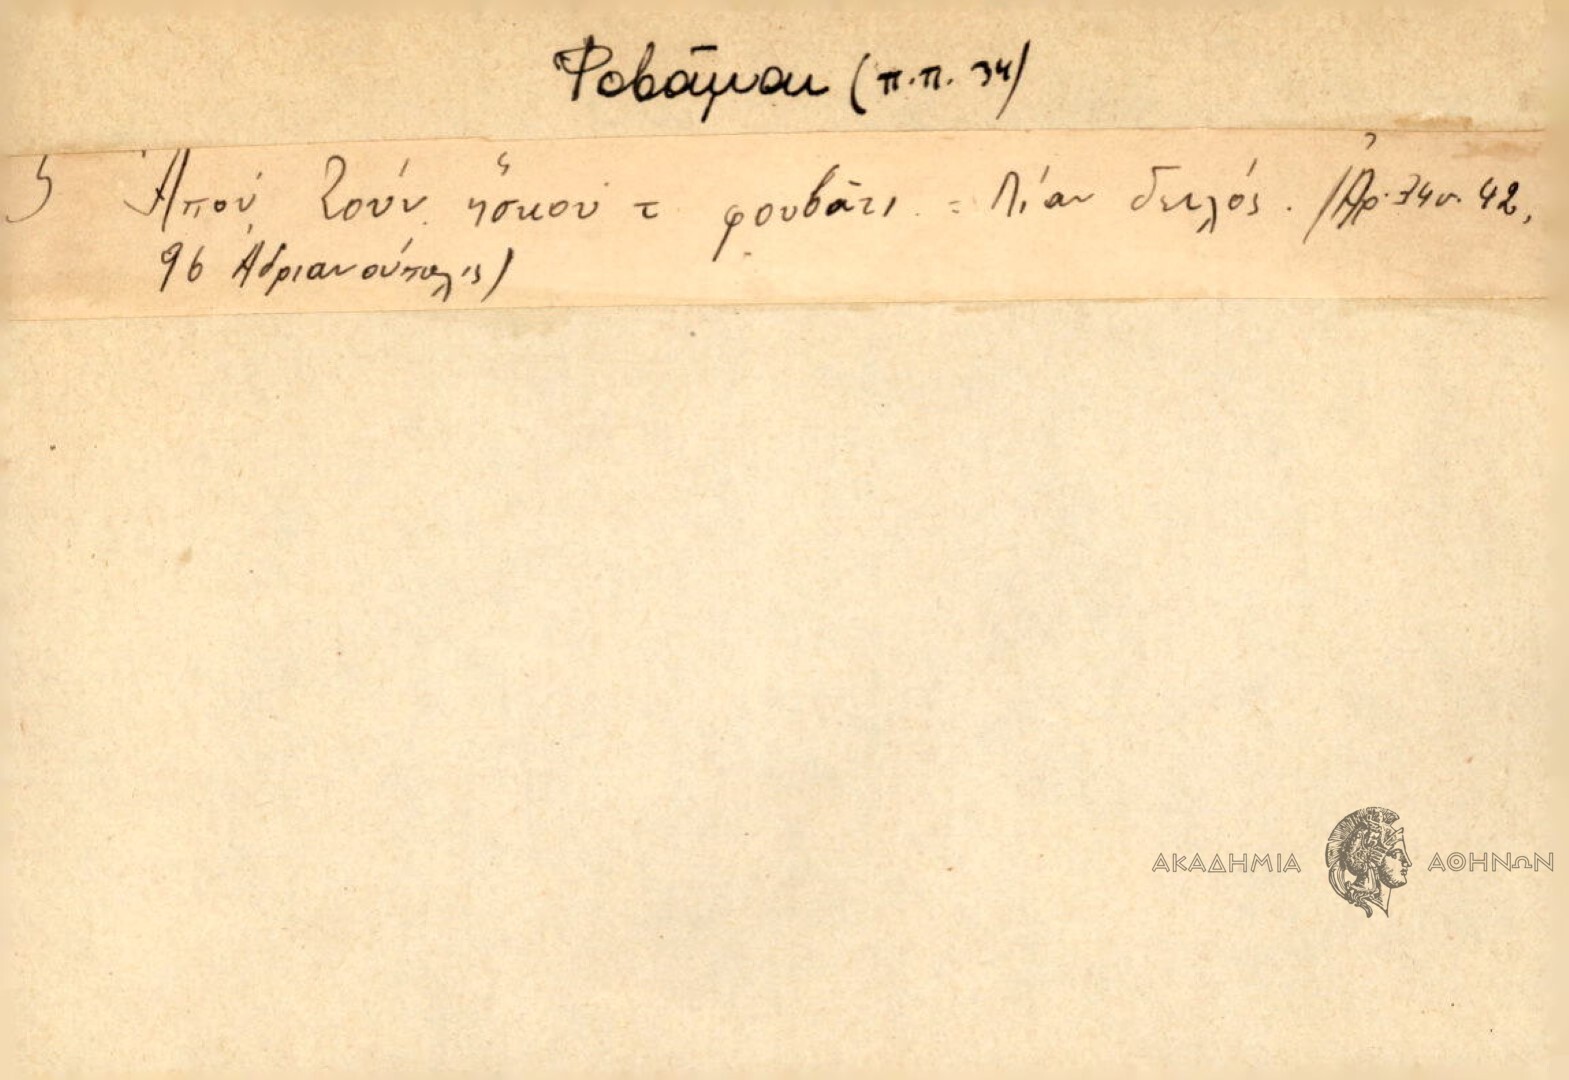 Φοβᾶμαι (π.π. 34)
5 Ἀπού τούν ἥσκιού τ φουβᾶτι = Λίαν δειλός. (Ἀρ. 34 σ. 42,
96 Ἀδριανούπολις)
ΑΚΑΔΗΜΙΑ ΑΘΗΝΩΝ